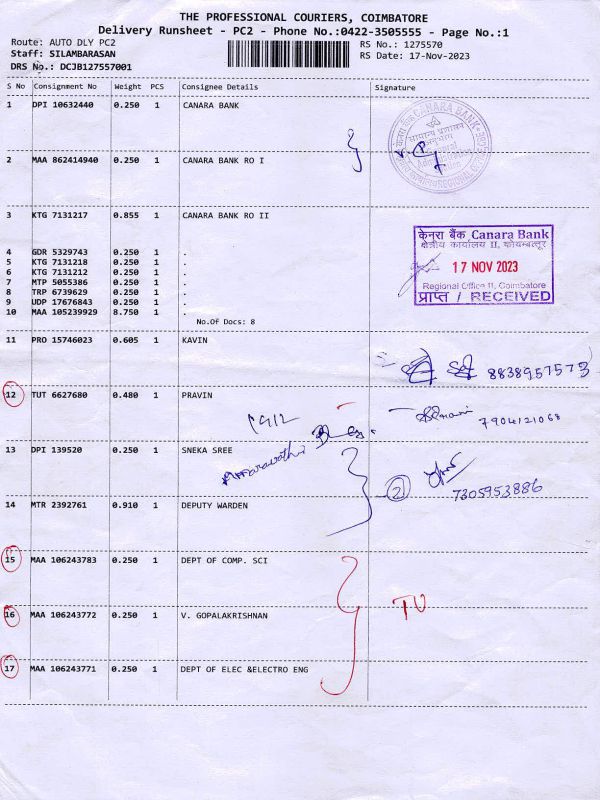 THE PROFESSIONAL COURIERS, COIMBATORE
Delivery Runsheet - PC2 - Phone No.:0422-3505555 - Page No.:1
Route: AUTO DLY PC2
RS No.: 1275570
Staff: SILAMBARASAN
RS Date: 17-Nov-2023
DRS No.: DCJB127557001
S No Consignment No Weight PCS Consignee Details Signature
1 DPI 10632440 0.250 1 CANARA BANK
CANARA BANK
2 MAA 862414940 0.250 1 CANARA BANK RO I
3 KTG 7131217 0.855 1 CANARA BANK RO II
केनरा बैंक Canara Bank
क्षेत्रीय कार्यालय II, कोयम्बत्तूर
17 NOV 2023
Regional Office II, Coimbatore
प्राप्त / RECEIVED
4 GDR 5329743 0.250 1 .
5 KTG 7131218 0.250 1 .
6 KTG 7131212 0.250 1 .
7 MTP 5055386 0.250 1 .
8 TRP 6739629 0.250 1 .
9 UDP 17676843 0.250 1 .
10 MAA 105239929 8.750 1 .
No.Of Docs: 8
11 PRO 15746023 0.605 1 KAVIN
8838957573
12 TUT 6627680 0.480 1 PRAVIN
7904121068
13 DPI 139520 0.250 1 SNEKA SREE
2
7305953886
14 MTR 2392761 0.910 1 DEPUTY WARDEN
15 MAA 106243783 0.250 1 DEPT OF COMP. SCI
16 MAA 106243772 0.250 1 V. GOPALAKRISHNAN
TU
17 MAA 106243771 0.250 1 DEPT OF ELEC &ELECTRO ENG